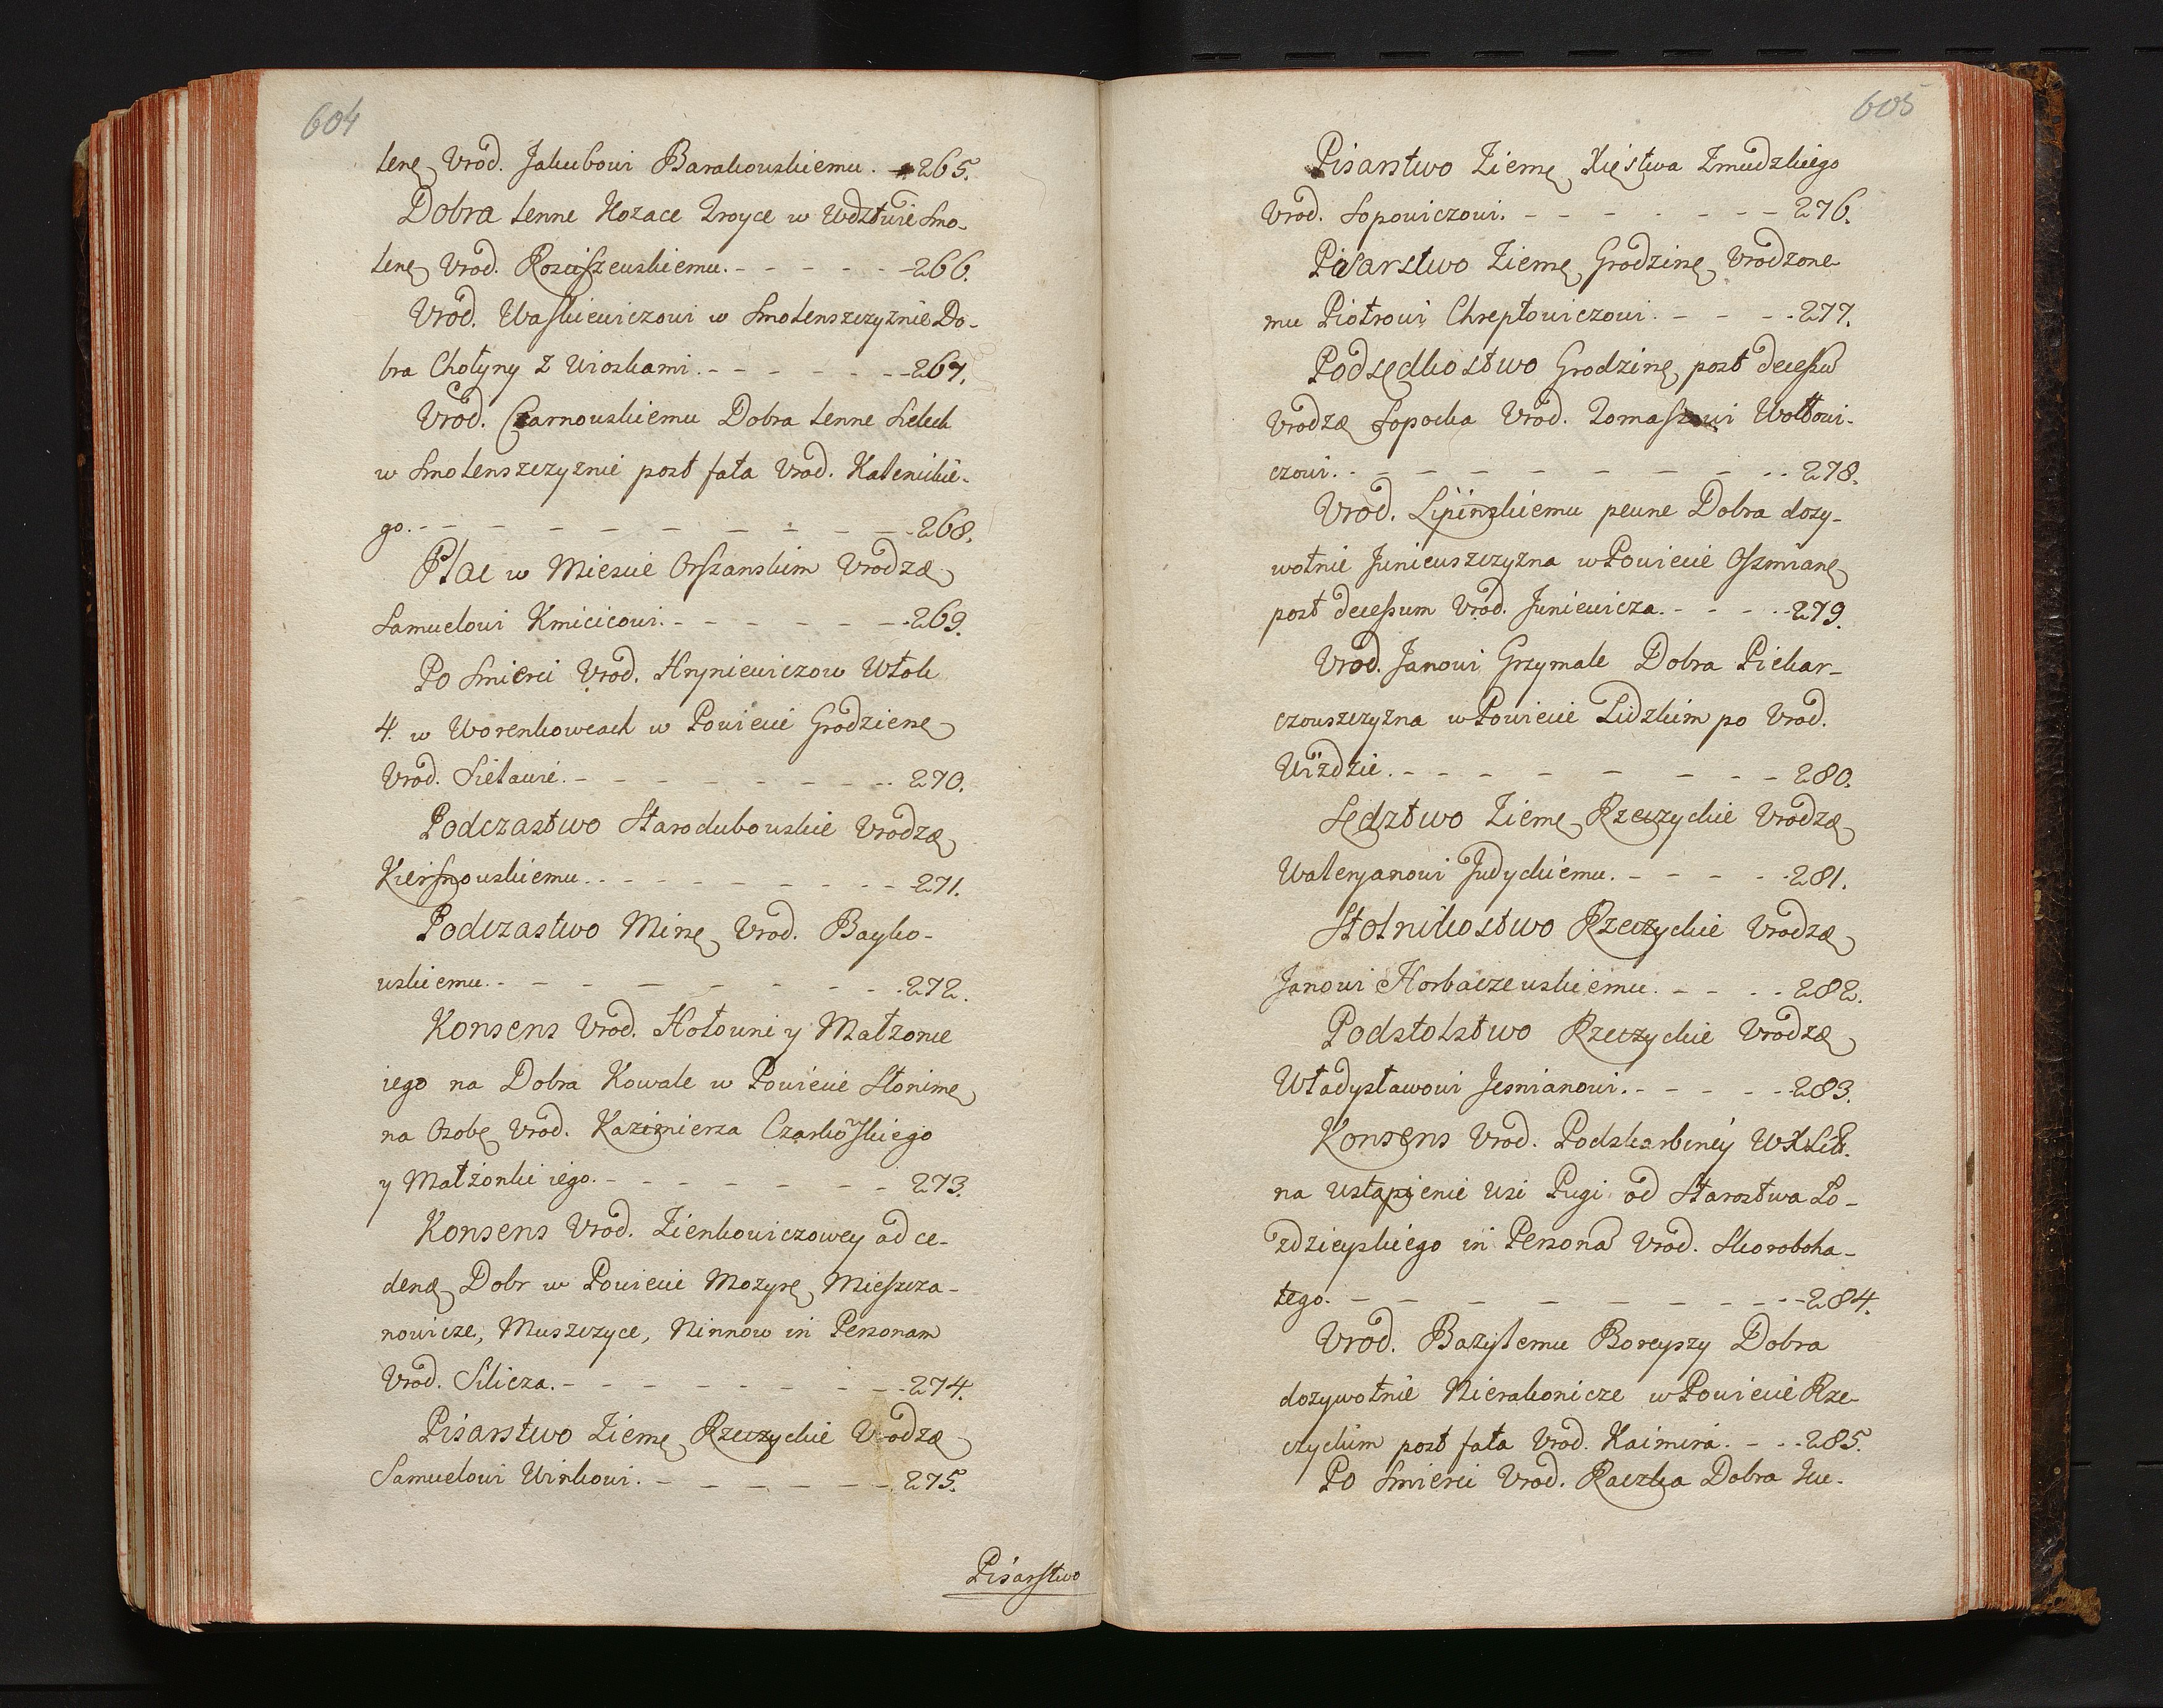 604
lenę Vrod. Jakubowi Barakowskiemu. - 265.
Dobra lenne Hozace Troyce w Wdztwie Smo-
lenę Vrod. Rosciszewskiemu. - - - - - 266.
Vrod. Waskiewiczowi w Smolenszczyznie Do-
bra Chołyny z Wioskami. - - - - - - - 267.
Vrod. Czarnowskiemu Dobra lenne Sielech
w Smolenszczyznie post fata Vrod. Kalenickie-
go. - - - - - - - - - - 268.
Plac w Miescie Orszanskim Vrodzæ
Samuelowi Kmicicowi. - - - - - - - 269.
Po Smierci Vrod. Hryniewiczow Włok
4. w Worenkowcach w Powiecie Grodzienę
Vrod. Sielawie. - - - - - - - - 270.
Podczastwo Starodubowskie Vrodzæ
Kiersnowskiemu. - - - - - - - - 271.
Podczastwo Minę Vrod. Bayko-
wskiemu. - - - - - - - - - 272.
Konsens Vrod. Hołowni y Małzonce
iego na Dobra Kowale w Powiecie Słonimę
na Osobę Vrod. Kazimierza Czarkoskiego
y Małżonki iego. - - - - - - - 273.
Konsens Vrod. Zienkowiczowey ad ce-
denđ Dobr w Powiecie Mozyrę Mieszcza-
nowicze, Muszczyce, Ninnow in Personam
Vrod. Silicza. - - - - - - - - 274.
Pisarstwo Ziemę Rzeczyckie Vrodzæ
Samuelowi Winkowi. - - - - - - 275.
Pisarstwo
605
Pisarstwo Ziemę Xięstwa Zmudzkiego
Vrod. Sopowiczowi. - - - - - - - - 276.
Pisarstwo Ziemę Grodzinę Vrodzone
mu Piotrowi Chreptowiczowi. - - - - 277.
Podsędkostwo Grodzinę post decessū
Vrodzæ Sopocka Vrod. Tomaszowi Wołłowi-
czowi. - - - - - - - - - - 278.
Vrod. Lipinskiemu pewne Dobra dozy-
wotnie Juniewszczyzna w Powiecie Oszmianę
post decessum Vrod. Juniewicza. - - - - 279.
Vrod. Janowi Grzymale Dobra Piekar-
czowszczyzna w Powiecie Lidzkim po Vrod.
Wiżdzie. - - - - - - - - 280.
Sędztwo Ziemę Rzeczyckie Vrodzæ
Waleryanowi Judyckiemu. - - - - - 281.
Stolnikostwo Rzeczyckie Vrodzæ
Janowi Horbaczewskiemu. - - - - 282.
Podstolstwo Rzeczyckie Vrodzæ
Władysławowi Jesmanowi. - - - - - 283.
Konsens Vrod. Podskarbiney WXLitt.
na ustąpienie Wsi Pugi od Starostwa Ło-
zdzieyskiego in Personā Vrod. Skoroboha-
tego. - - - - - - - - - - 284.
Vrod. Bazylemu Boreyszy Dobra
dozywotnie Nierakonicze w Powiecie Rze-
czyckim post fata Vrod. Kaimira. - - - 285.
Po Smierci Vrod. Raczka Dobra Zu-